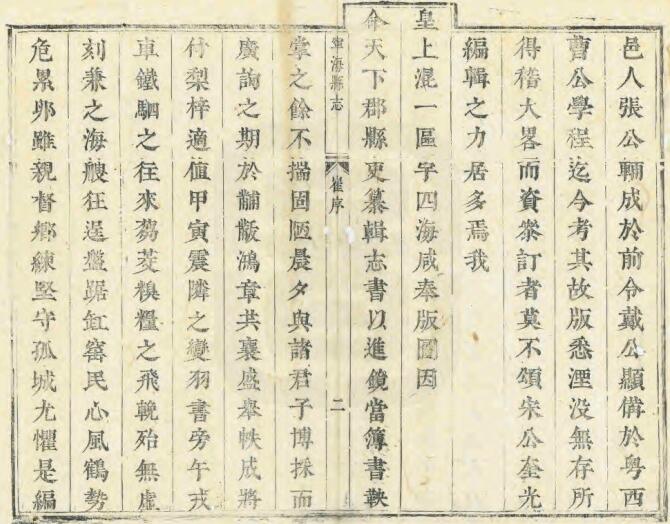 邑人張公輛成於前令戴公顯備於粤西
曹公學程迄今考其故版悉湮没無存所
得稽大畧而資衆訂者莫不頌宋公奎光
編輯之力居多焉我
皇上混一區宇四海咸奉版圖因
命天下郡縣更纂輯志書以進鏡當簿書鞅
寧海縣志
崔序
二
掌之餘不揣固陋晨夕與諸君子博採而
廣詢之期於黼黻鴻章共襄盛舉帙成將
付梨梓適值甲寅震隣之變羽書旁午戎
車鐵駟之往來芻茭糗糧之飛輓殆無虛
刻兼之海艘狂逞盤踞缸窰民心風鶴勢
危累卵雖親督鄉練堅守孤城尤懼是編